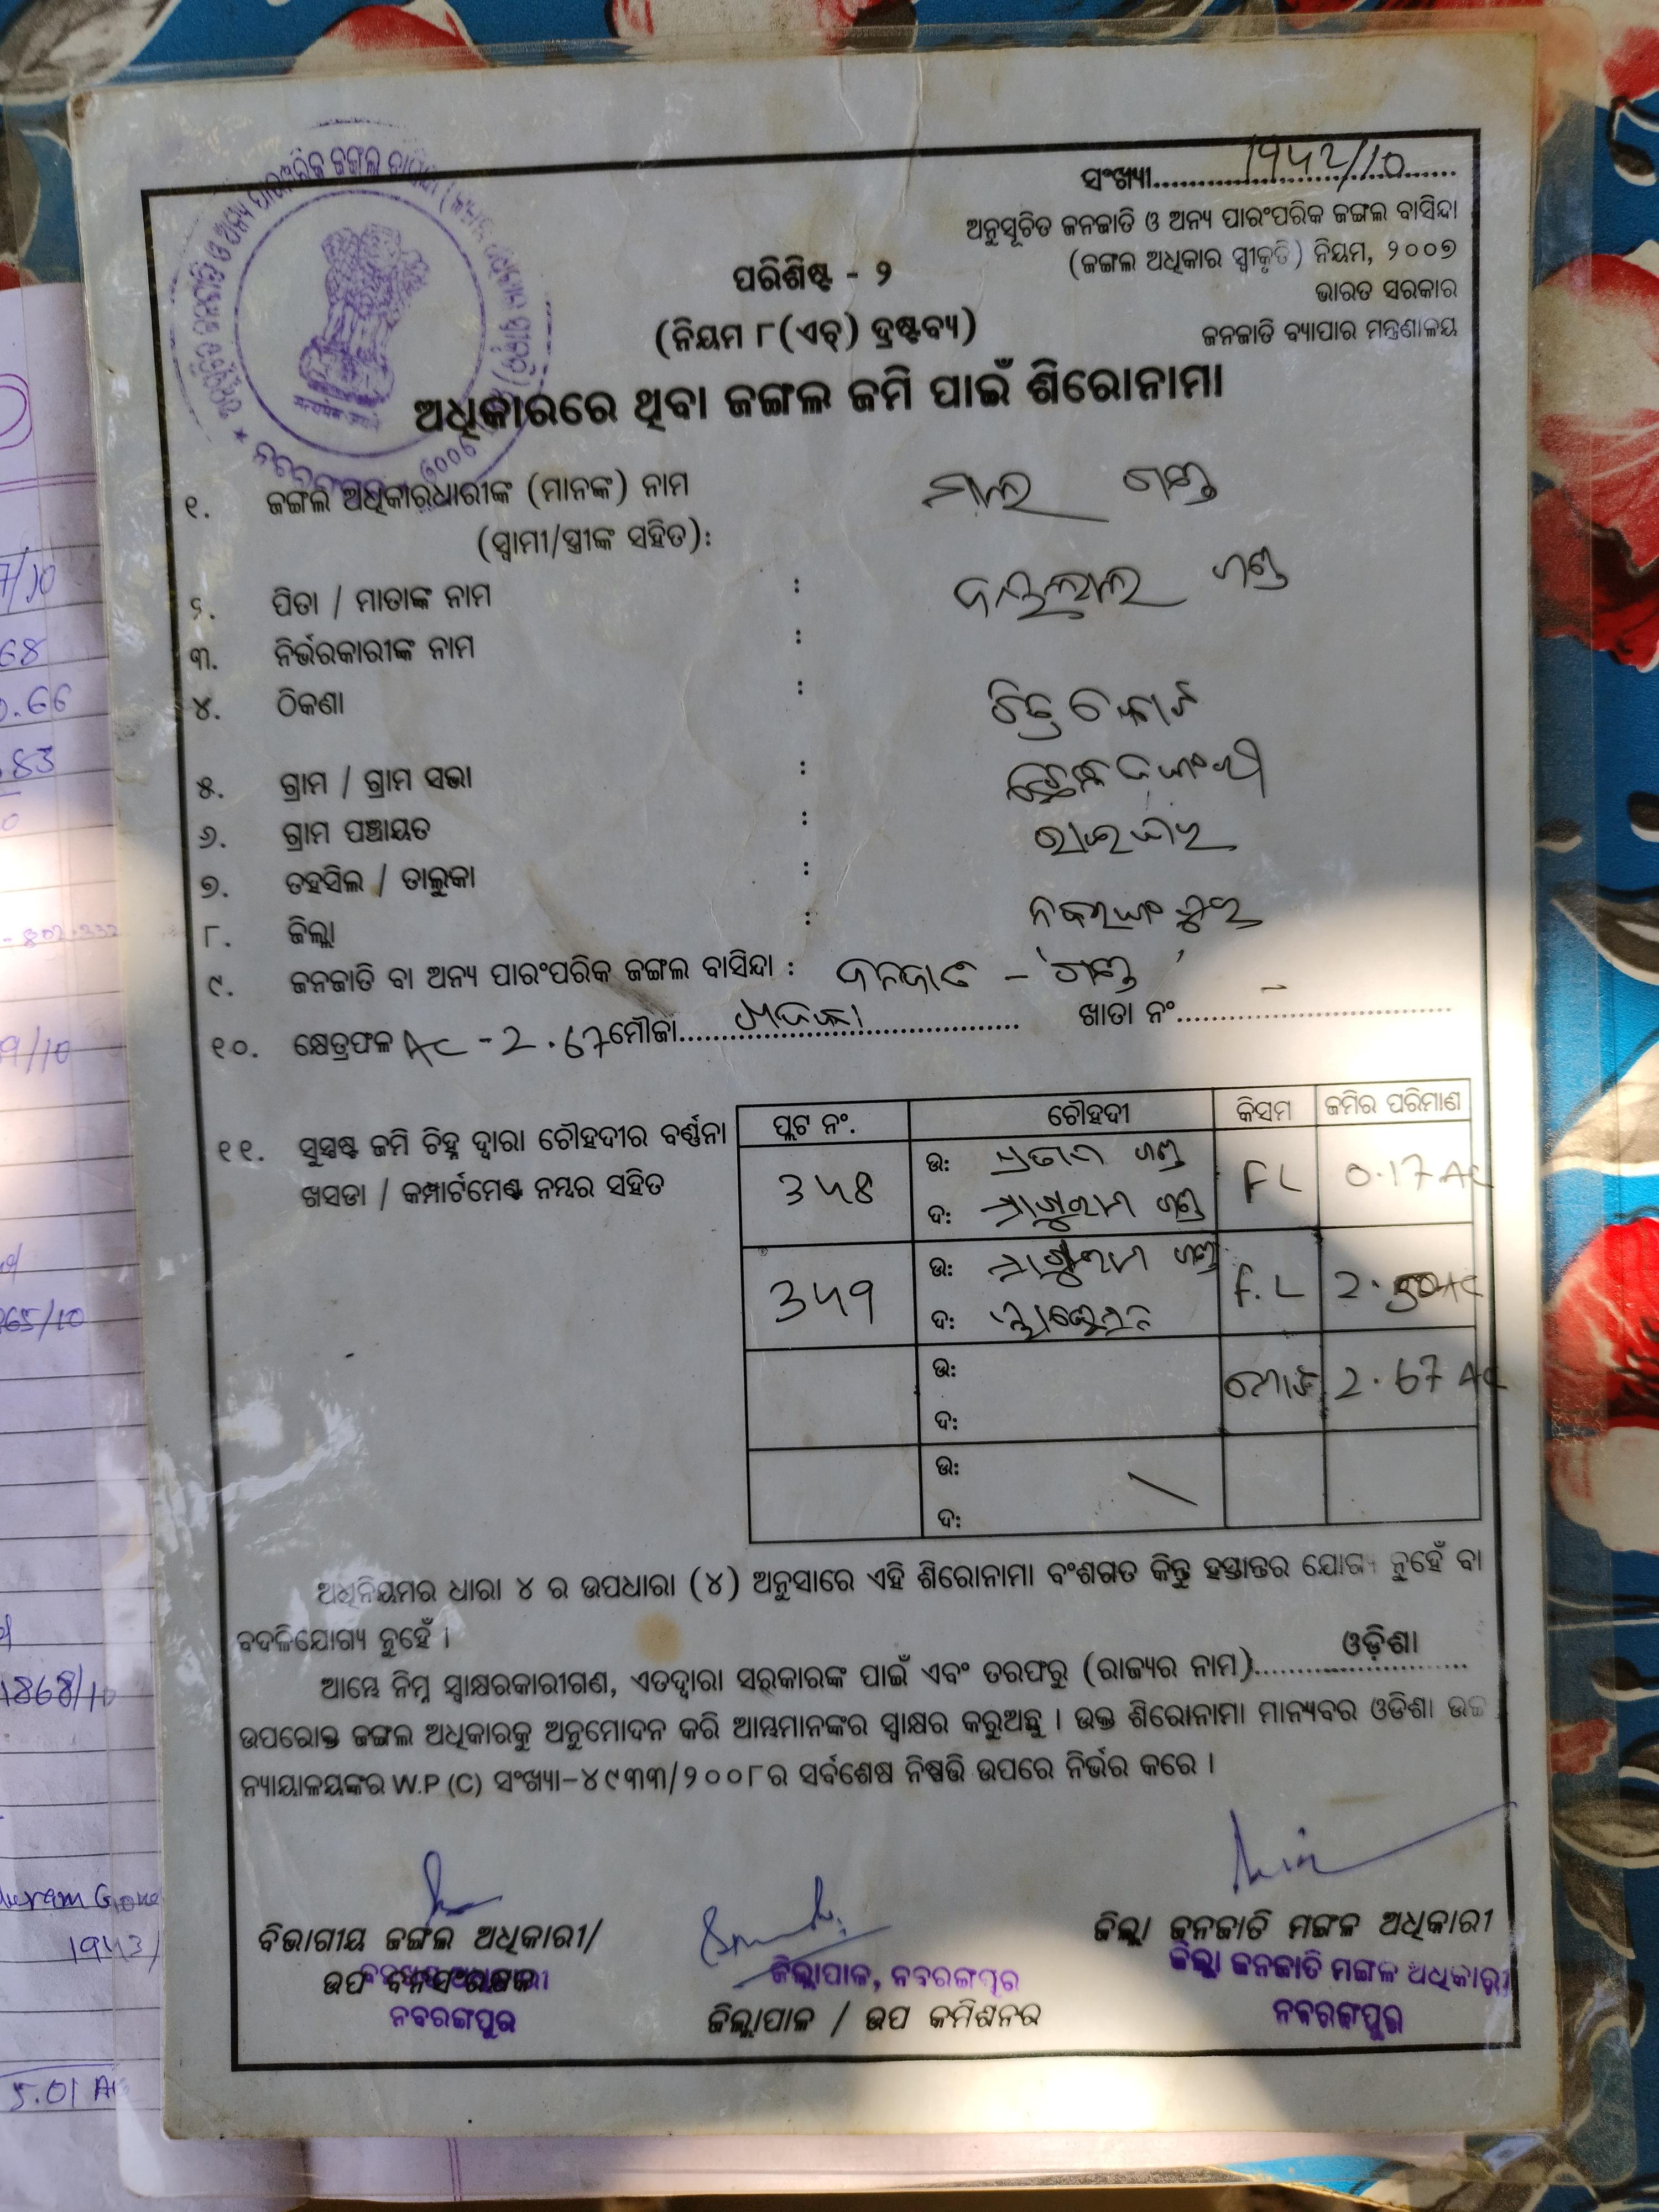 ସଂଖ୍ୟା 1942/10
ଅନୁସୂଚିତ ଜନଜାତି ଓ ଅନ୍ୟ ପାରଂପରିକ ଜଙ୍ଗଲ ବାସିନ୍ଦା
(ଜଙ୍ଗଲ ଅଧିକାର ସ୍ୱୀକୃତି) ନିୟମ, ୨୦୦୭
ଭାରତ ସରକାର
ଜନଜାତି ବ୍ୟାପାର ମନ୍ତ୍ରଣାଳୟ
ପରିଶିଷ୍ଟ - ୨
(ନିୟମ ୮(ଏଚ୍) ଦ୍ରଷ୍ଟବ୍ୟ)
ଅଧିକାରରେ ଥିବା ଜଙ୍ଗଲ ଜମି ପାଇଁ ଶିରୋନାମା
୧. ଜଙ୍ଗଲ ଅଧିକାରଧାରୀଙ୍କ (ମାନଙ୍କ) ନାମ
(ସ୍ୱାମୀ/ସ୍ତ୍ରୀଙ୍କ ସହିତ):
୨. ପିତା / ମାତାଙ୍କ ନାମ :
୩. ନିର୍ଭରକାରୀଙ୍କ ନାମ :
୪. ଠିକଣା :
୫. ଗ୍ରାମ / ଗ୍ରାମ ସଭା :
୬. ଗ୍ରାମ ପଞ୍ଚାୟତ :
୭. ତହସିଲ / ତାଲୁକା : ରାଇଘର
୮. ଜିଲ୍ଲା : ନବରଂଗପୁର
୯. ଜନଜାତି ବା ଅନ୍ୟ ପାରଂପରିକ ଜଙ୍ଗଲ ବାସିନ୍ଦା : ଜନଜାତି - 'ଗଣ୍ଡ'
୧୦. କ୍ଷେତ୍ରଫଳ AC - 2.67 ମୌଜା ଖାତା ନଂ -
୧୧. ସୁସ୍ପଷ୍ଟ ଜମି ଚିହ୍ନ ଦ୍ୱାରା ଚୌହଦୀର ବର୍ଣ୍ଣନା
ଖସଡା / କମ୍ପାର୍ଟମେଣ୍ଟ ନମ୍ବର ସହିତ
ପ୍ଲଟ ନଂ. ଚୌହଦୀ କିସମ ଜମିର ପରିମାଣ
348 ଉ: ପ୍ରତାପ ଗଣ୍ଡ FL 0.17 AC
ଦ: ଗଣ୍ଡ
349 ଉ: ଗଣ୍ଡ F.L 2.50 AC
ଦ:
ଉ: ମୋଟ 2.67 AC
ଦ:
ଉ:
ଦ:
ଅଧିନିୟମର ଧାରା ୪ ର ଉପଧାରା (୪) ଅନୁସାରେ ଏହି ଶିରୋନାମା ବଂଶଗତ କିନ୍ତୁ ହସ୍ତାନ୍ତର ଯୋଗ୍ୟ ନୁହେଁ ବା
ବଦଳିଯୋଗ୍ୟ ନୁହେଁ ।
ଆମ୍ଭେ ନିମ୍ନ ସ୍ୱାକ୍ଷରକାରୀଗଣ, ଏତଦ୍ୱାରା ସରକାରଙ୍କ ପାଇଁ ଏବଂ ତରଫରୁ (ରାଜ୍ୟର ନାମ) ଓଡ଼ିଶା
ଉପରୋକ୍ତ ଜଙ୍ଗଲ ଅଧିକାରକୁ ଅନୁମୋଦନ କରି ଆମ୍ଭମାନଙ୍କର ସ୍ୱାକ୍ଷର କରୁଅଛୁ । ଉକ୍ତ ଶିରୋନାମା ମାନ୍ୟବର ଓଡିଶା ଉଚ୍ଚ
ନ୍ୟାୟାଳୟଙ୍କର W.P (C) ସଂଖ୍ୟା-୪୯୩୩/୨୦୦୮ର ସର୍ବଶେଷ ନିଷ୍ପତ୍ତି ଉପରେ ନିର୍ଭର କରେ ।
ବିଭାଗୀୟ ଜଙ୍ଗଲ ଅଧିକାରୀ/
ଉପ ବନସଂରକ୍ଷକ
ନବରଙ୍ଗପୁର
ଜିଲ୍ଲାପାଳ, ନବରଙ୍ଗପୁର
ଜିଲ୍ଲାପାଳ / ଉପ କମିଶନର
ଜିଲ୍ଲା ଜନଜାତି ମଙ୍ଗଳ ଅଧିକାରୀ
ଜିଲ୍ଲା ଜନଜାତି ମଙ୍ଗଳ ଅଧିକାରୀ
ନବରଙ୍ଗପୁର
1868/10
1943/
5.01 AC